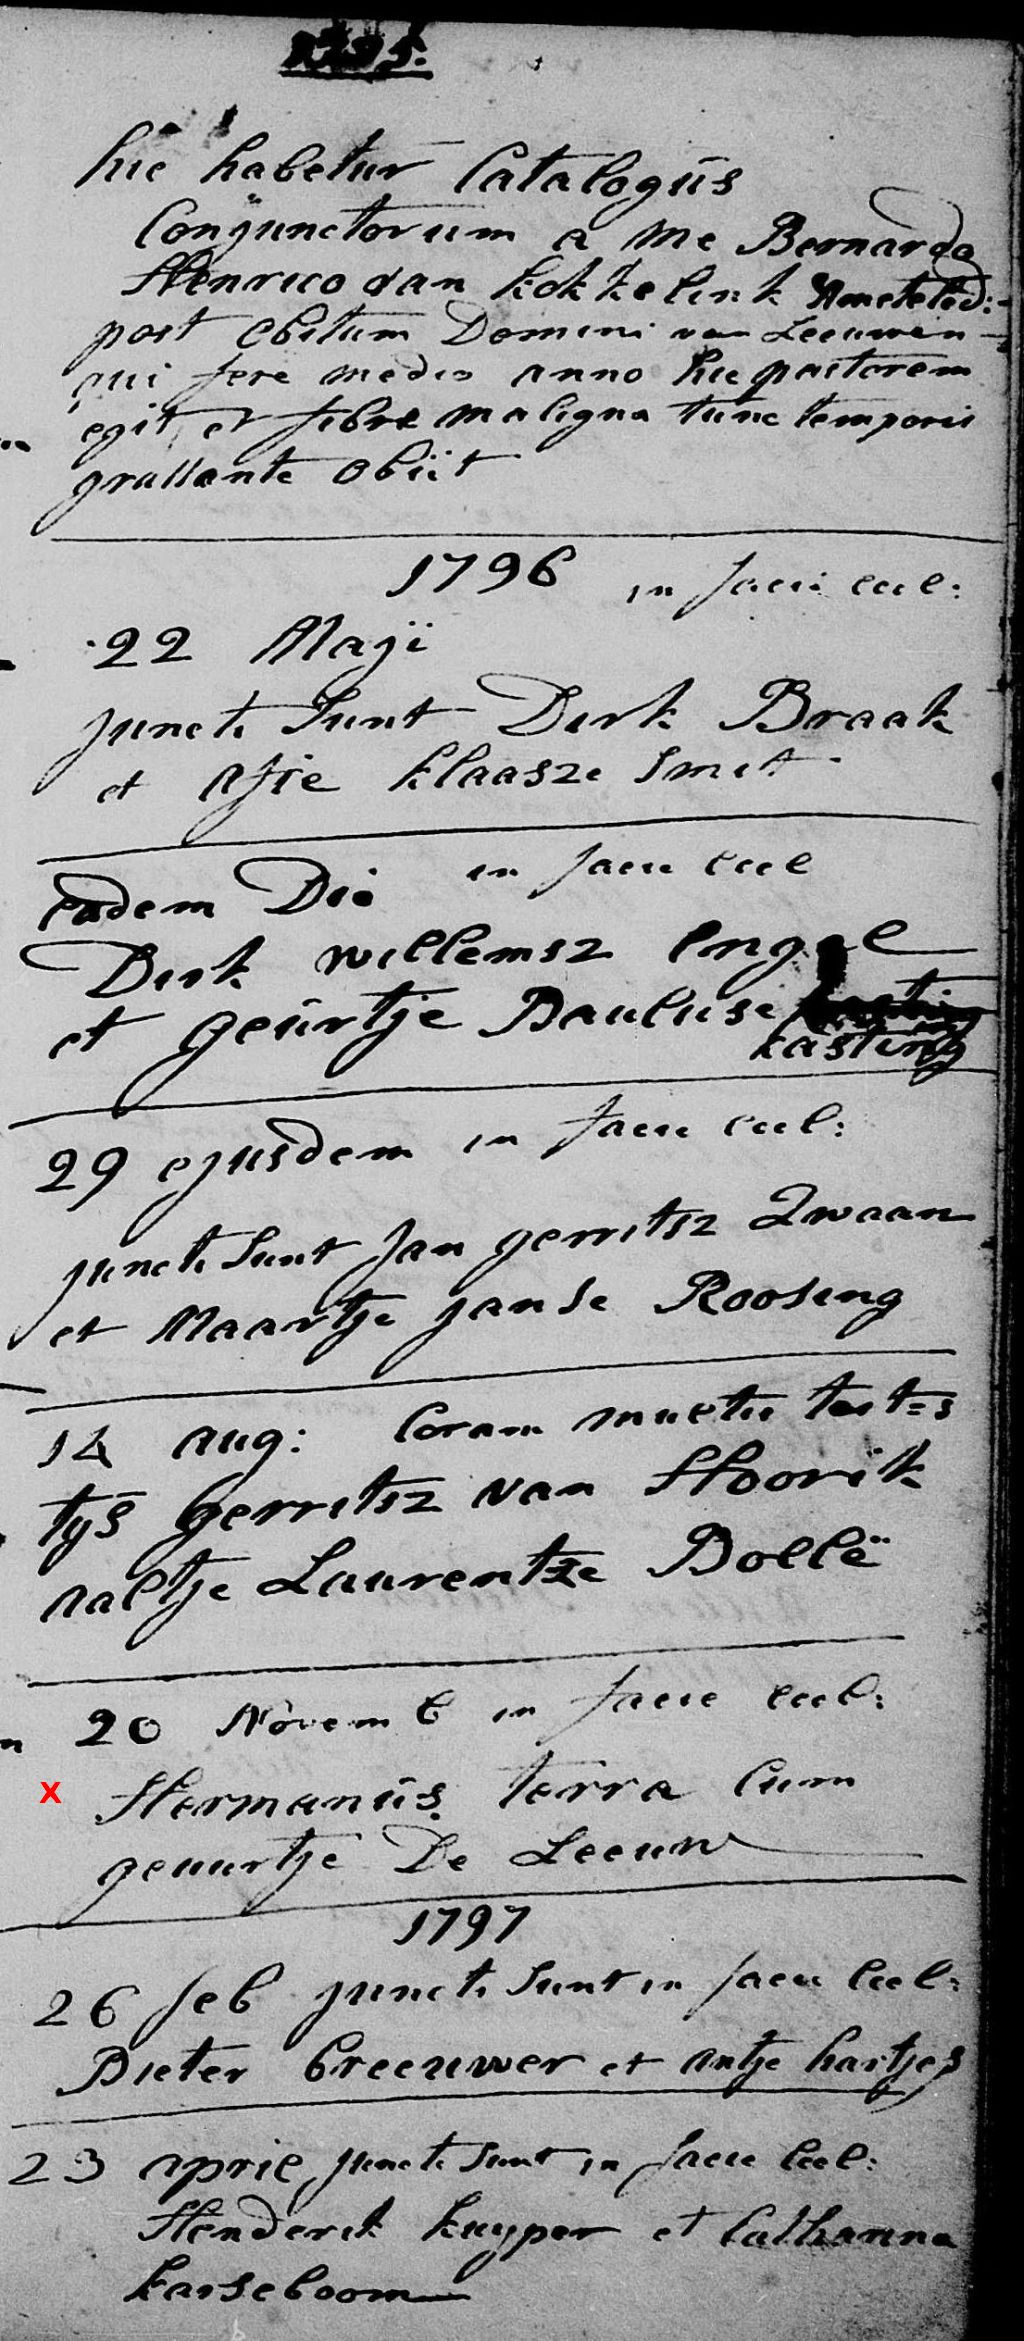 1795.
hic habetur Catalogus
Conjunctorum a me Bernardo
Henrico van Kokkelink
post obitum Domini van Leeuwen
qui fere medio anno hic pastorem
egit, et febre maligna tunc temporis
grassante obiit
1796 in facie eccl:
22 Maji
juncti Sunt Dirk Braak
et Afie klaasze Smit
Eadem Die in facie eccl
Dirk willemsz Engel
et geurtje Pauluse
kasting
29 ejusdem in facie eccl:
juncti Sunt Jan gerritsz Zwaan
et Maartje janse Roosing
14 aug: Coram testes
tys gerritsz van Hoorik
aaltje Laurentze Bollë
20 Novemb in facie eccl:
x Hermanus terra Cum
geuurtje De Leeuw
1797
26 feb juncti Sunt in facie Eccl:
Pieter breeuwer et antje hartjes
23 april juncti Sunt in facie Eccl:
Henderik kuyper et Catharina
karseboom